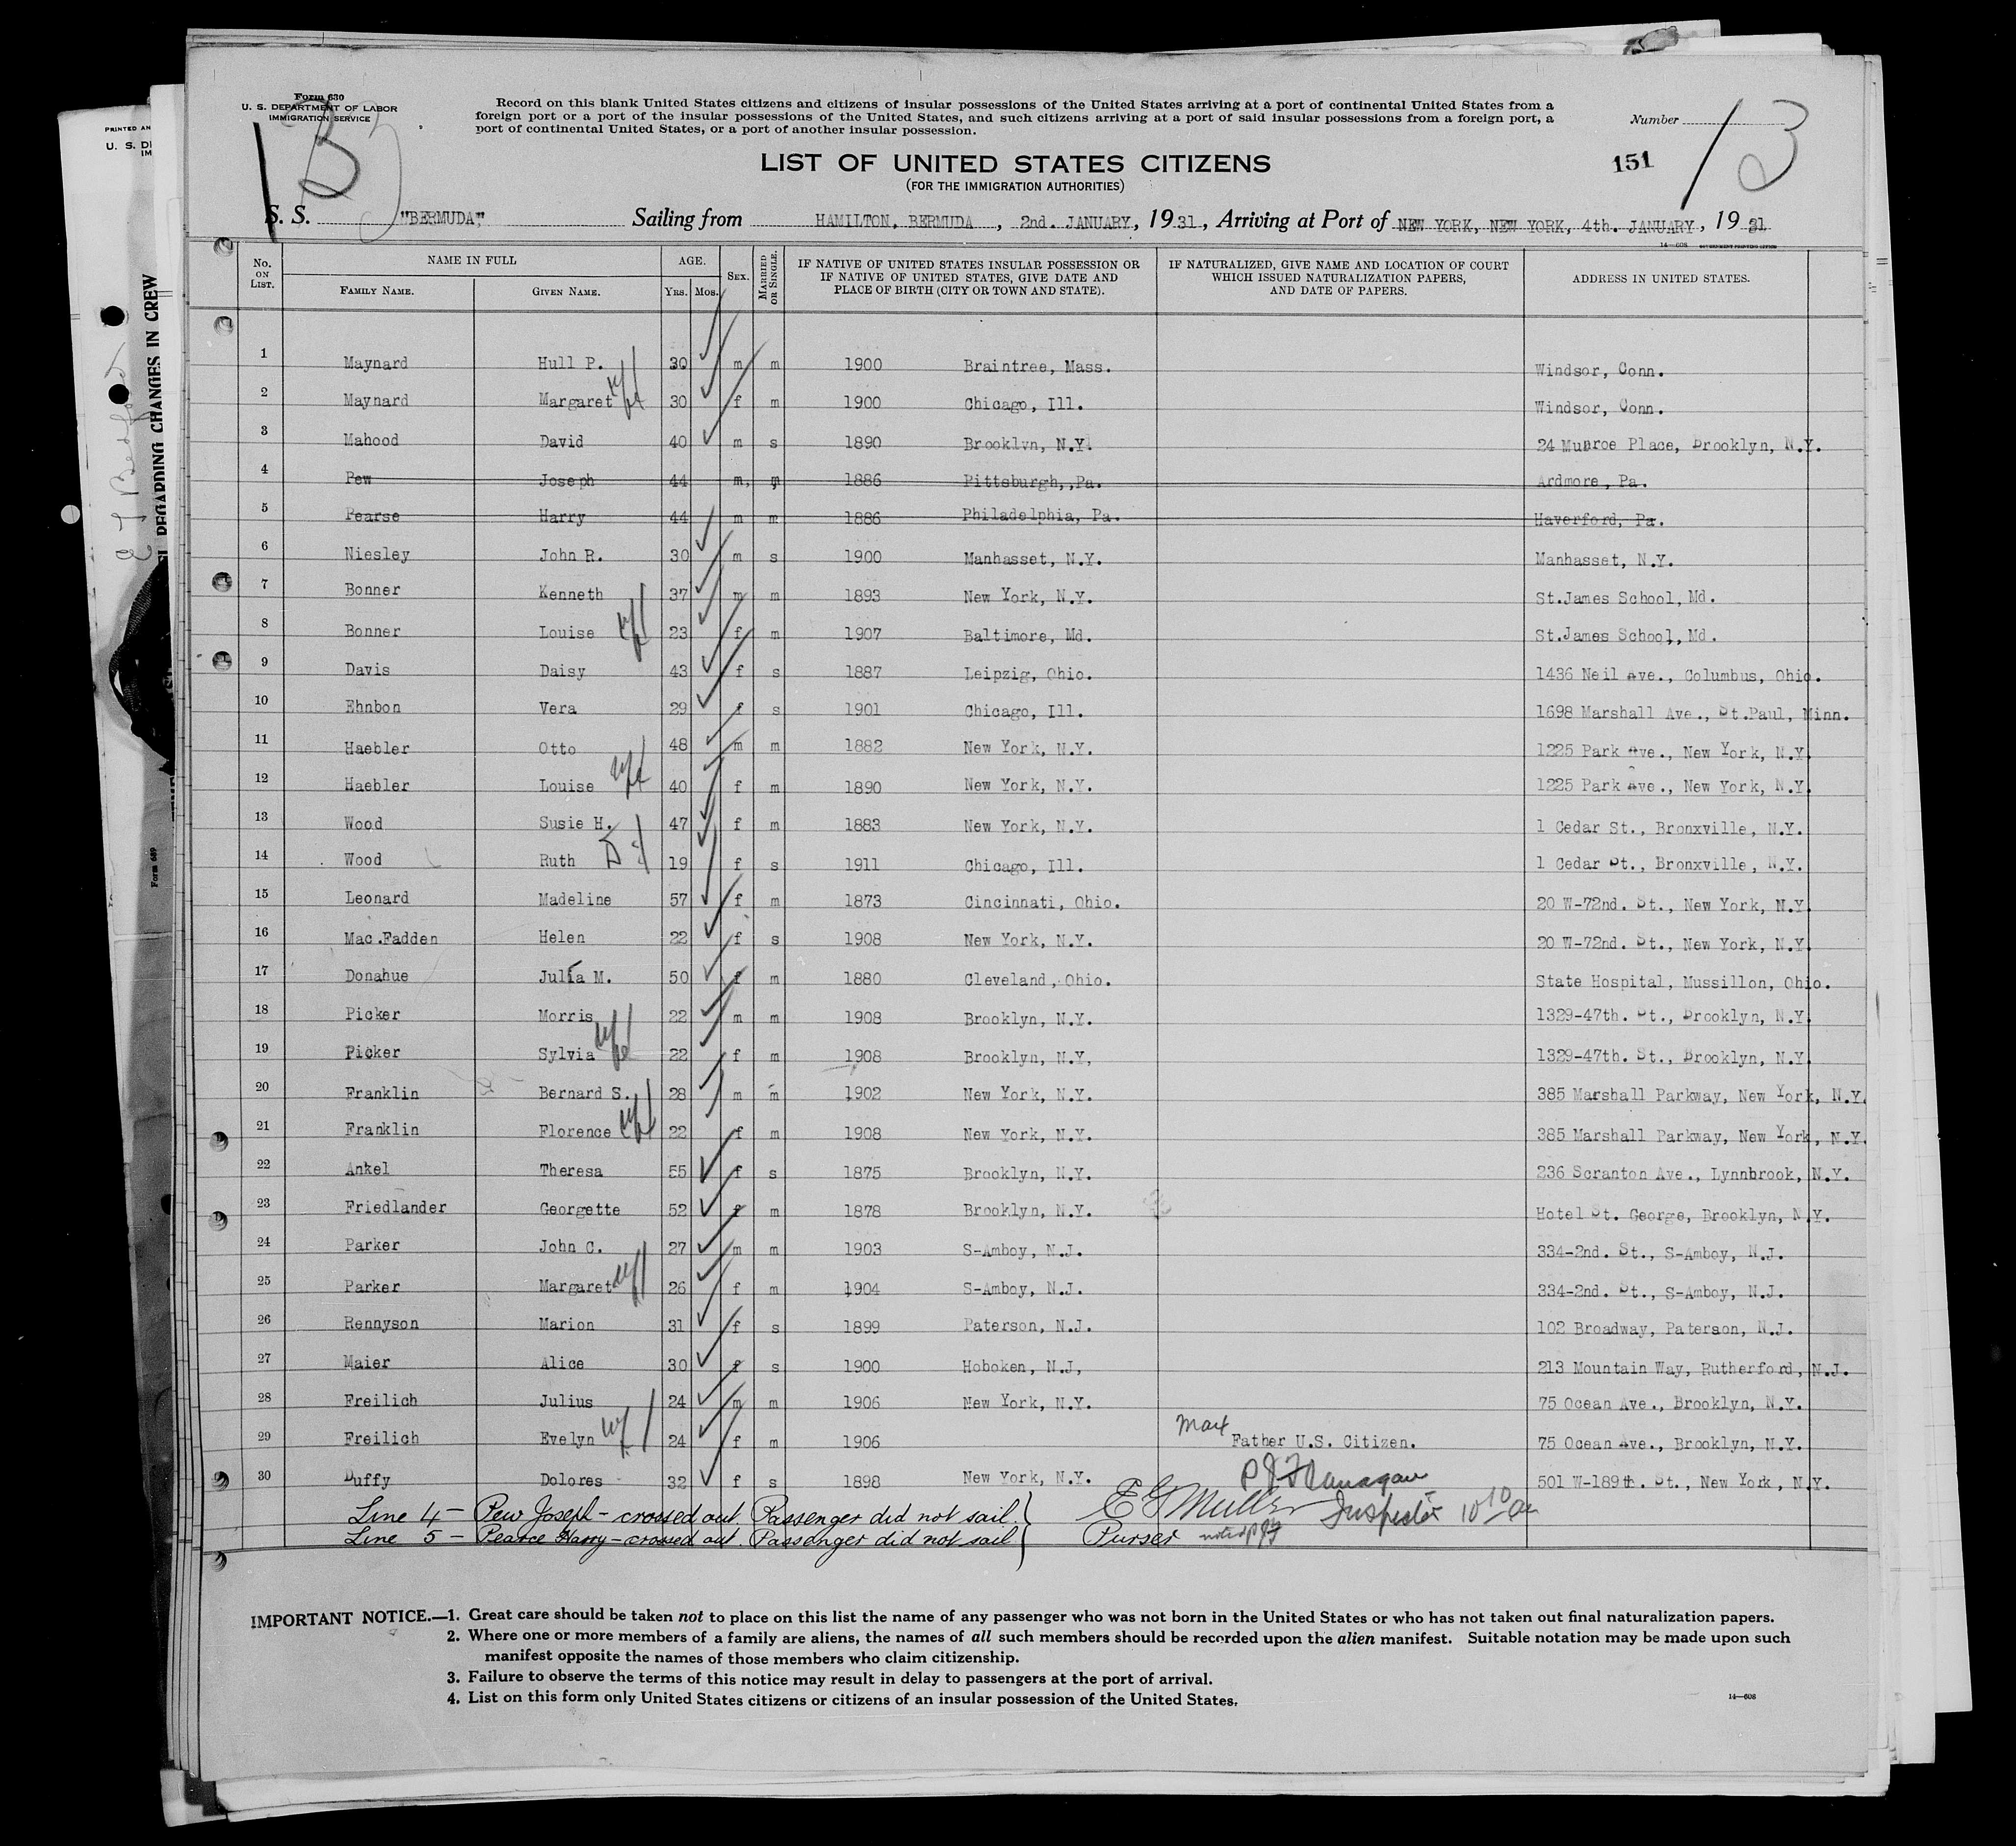 PRINTED AN
U. S. DE
IM
REGARDING CHANGES IN CREW
Form 689
Form 630
U. S. DEPARTMENT OF LABOR
IMMIGRATION SERVICE
Record on this blank United States citizens and citizens of insular possessions of the United States arriving at a port of continental United States from a
foreign port or a port of the insular possessions of the United States, and such citizens arriving at a port of said insular possessions from a foreign port, a
port of continental United States, or a port of another insular possession.
Number
LIST OF UNITED STATES CITIZENS
(FOR THE IMMIGRATION AUTHORITIES)
151
S. S. "BERMUDA" Sailing from HAMILTON, BERMUDA, 2nd. JANUARY, 1931, Arriving at Port of NEW YORK, NEW YORK, 4th. JANUARY, 1931
14—608 GOVERNMENT PRINTING OFFICE
No. ON LIST. NAME IN FULL FAMILY NAME. GIVEN NAME. AGE. YRS. MOS. SEX. MARRIED OR SINGLE. IF NATIVE OF UNITED STATES INSULAR POSSESSION OR IF NATIVE OF UNITED STATES, GIVE DATE AND PLACE OF BIRTH (CITY OR TOWN AND STATE). IF NATURALIZED, GIVE NAME AND LOCATION OF COURT WHICH ISSUED NATURALIZATION PAPERS, AND DATE OF PAPERS. ADDRESS IN UNITED STATES.
1 Maynard Hull P. 30 m m 1900 Braintree, Mass. Windsor, Conn.
2 Maynard Margaret 30 f m 1900 Chicago, Ill. Windsor, Conn.
3 Mahood David 40 m s 1890 Brooklyn, N.Y. 24 Munroe Place, Brooklyn, N.Y.
4 Pew Joseph 44 m, m 1886 Pittsburgh,,Pa. Ardmore, Pa.
5 Pearse Harry 44 m m 1886 Philadelphia, Pa. Haverford, Pa.
6 Niesley John R. 30 m s 1900 Manhasset, N.Y. Manhasset, N.Y.
7 Bonner Kenneth 37 m m 1893 New York, N.Y. St.James School, Md.
8 Bonner Louise 23 f m 1907 Baltimore, Md. St.James School, Md.
9 Davis Daisy 43 f s 1887 Leipzig, Ohio. 1436 Neil Ave., Columbus, Ohio.
10 Ehnbon Vera 29 f s 1901 Chicago, Ill. 1698 Marshall Ave., St.Paul, Minn.
11 Haebler Otto 48 m m 1882 New York, N.Y. 1225 Park Ave., New York, N.Y.
12 Haebler Louise 40 f m 1890 New York, N.Y. 1225 Park Ave., New York, N.Y.
13 Wood Susie H. 47 f m 1883 New York, N.Y. 1 Cedar St., Bronxville, N.Y.
14 Wood Ruth 19 f s 1911 Chicago, Ill. 1 Cedar St., Bronxville, N.Y.
15 Leonard Madeline 57 f m 1873 Cincinnati, Ohio. 20 W-72nd. St., New York, N.Y.
16 Mac.Fadden Helen 22 f s 1908 New York, N.Y. 20 W-72nd. St., New York, N.Y.
17 Donahue Julia M. 50 f m 1880 Cleveland, Ohio. State Hospital, Mussillon, Ohio.
18 Picker Morris 22 m m 1908 Brooklyn, N.Y. 1329-47th. St., Brooklyn, N.Y.
19 Picker Sylvia 22 f m 1908 Brooklyn, N.Y, 1329-47th. St., Brooklyn, N.Y.
20 Franklin Bernard S. 28 m m 1902 New York, N.Y. 385 Marshall Parkway, New York, N.Y.
21 Franklin Florence 22 f m 1908 New York, N.Y. 385 Marshall Parkway, New York, N.Y.
22 Ankel Theresa 55 f s 1875 Brooklyn, N.Y. 236 Scranton Ave., Lynnbrook, N.Y.
23 Friedlander Georgette 52 f m 1878 Brooklyn, N.Y. Hotel St. George, Brooklyn, N.Y.
24 Parker John C. 27 m m 1903 S-Amboy, N.J. 334-2nd. St., S-Amboy, N.J.
25 Parker Margaret 26 f m 1904 S-Amboy, N.J. 334-2nd. St., S-Amboy, N.J.
26 Rennyson Marion 31 f s 1899 Paterson, N.J. 102 Broadway, Paterson, N.J.
27 Maier Alice 30 f s 1900 Hoboken, N.J, 213 Mountain Way, Rutherford, N.J.
28 Freilich Julius 24 m m 1906 New York, N.Y. 75 Ocean Ave., Brooklyn, N.Y.
29 Freilich Evelyn 24 f m 1906 Max Father U.S. Citizen. 75 Ocean Ave., Brooklyn, N.Y.
30 Duffy Dolores 32 f s 1898 New York, N.Y. 501 W-189th. St., New York, N.Y.
P J Flanagan
Line 4 — Pew Joseph — crossed out. Passenger did not sail. E G Muller Inspector
Line 5 — Pearce Harry — crossed out. Passenger did not sail Purser noted PJF
IMPORTANT NOTICE.—1. Great care should be taken not to place on this list the name of any passenger who was not born in the United States or who has not taken out final naturalization papers.
2. Where one or more members of a family are aliens, the names of all such members should be recorded upon the alien manifest. Suitable notation may be made upon such
manifest opposite the names of those members who claim citizenship.
3. Failure to observe the terms of this notice may result in delay to passengers at the port of arrival.
4. List on this form only United States citizens or citizens of an insular possession of the United States.
14—608